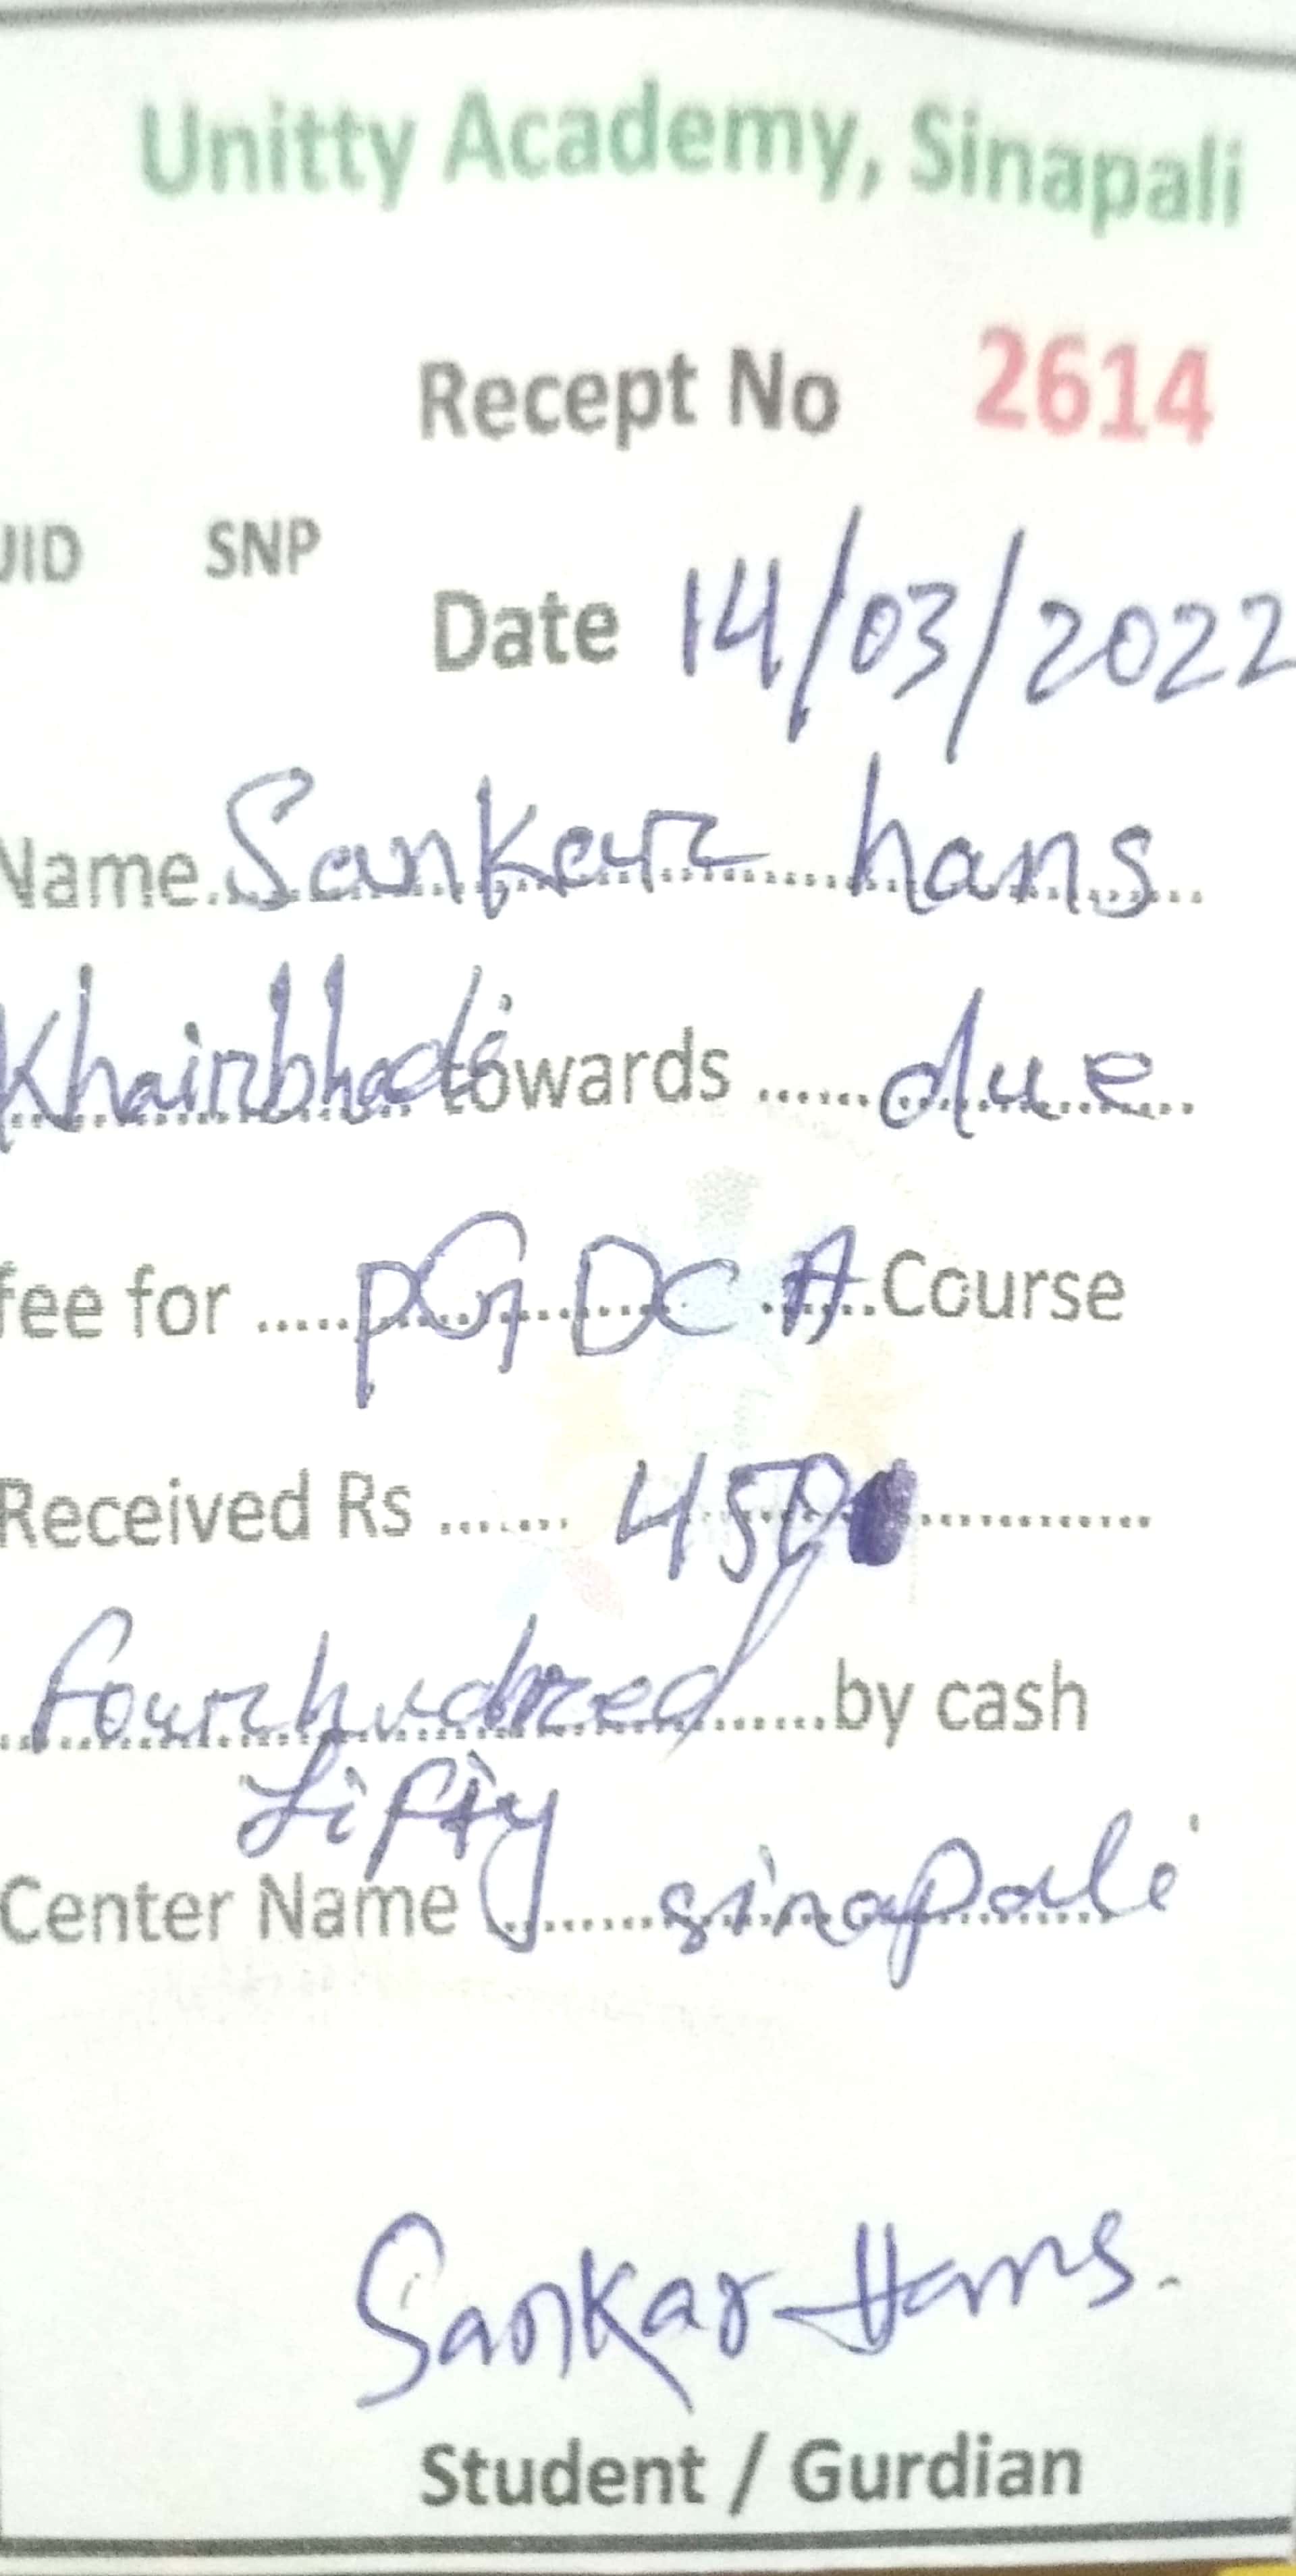 Unitty Academy, Sinapali
Recept No 2614
UID SNP
Date 14/03/2022
Name Sankar hans
Khairbhadi towards ...... due
fee for ..... PGDCA Course
Received Rs ....... 450
fourhudred ...... by cash
fifty
Center Name ........ sinapali
Sankar Hans.
Student / Gurdian